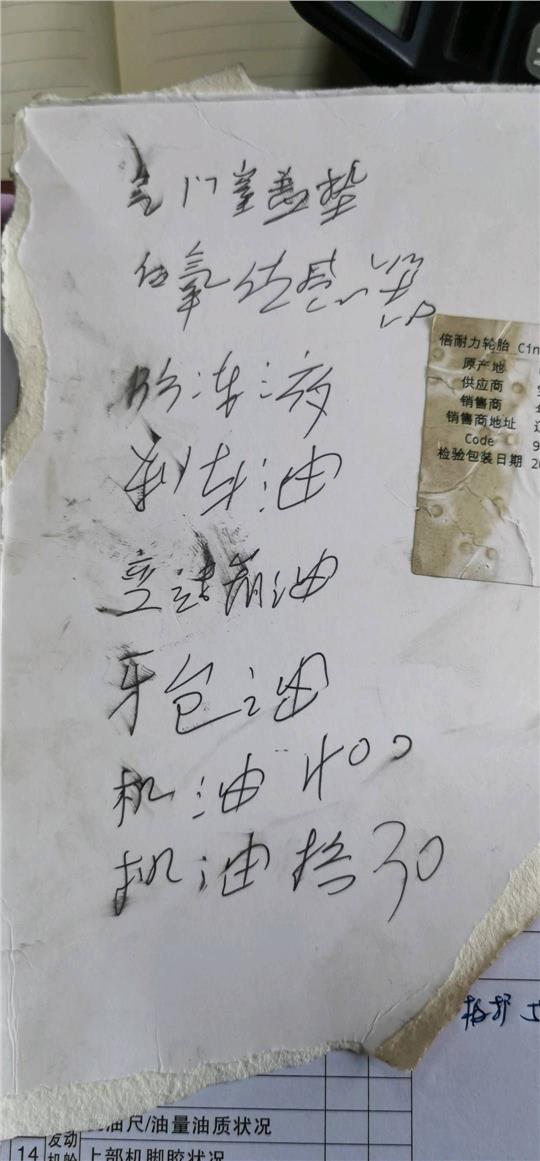 气门室盖垫
后氧传感器
防冻液
刹车油
变速箱油
牙包油
机油 400
机油格30
倍耐力轮胎 Cin
原产地
供应商
销售商
销售商地址 辽
Code 9
检验包装日期 20
油尺/油量油质状况
14 发动机舱 上部机脚胶状况